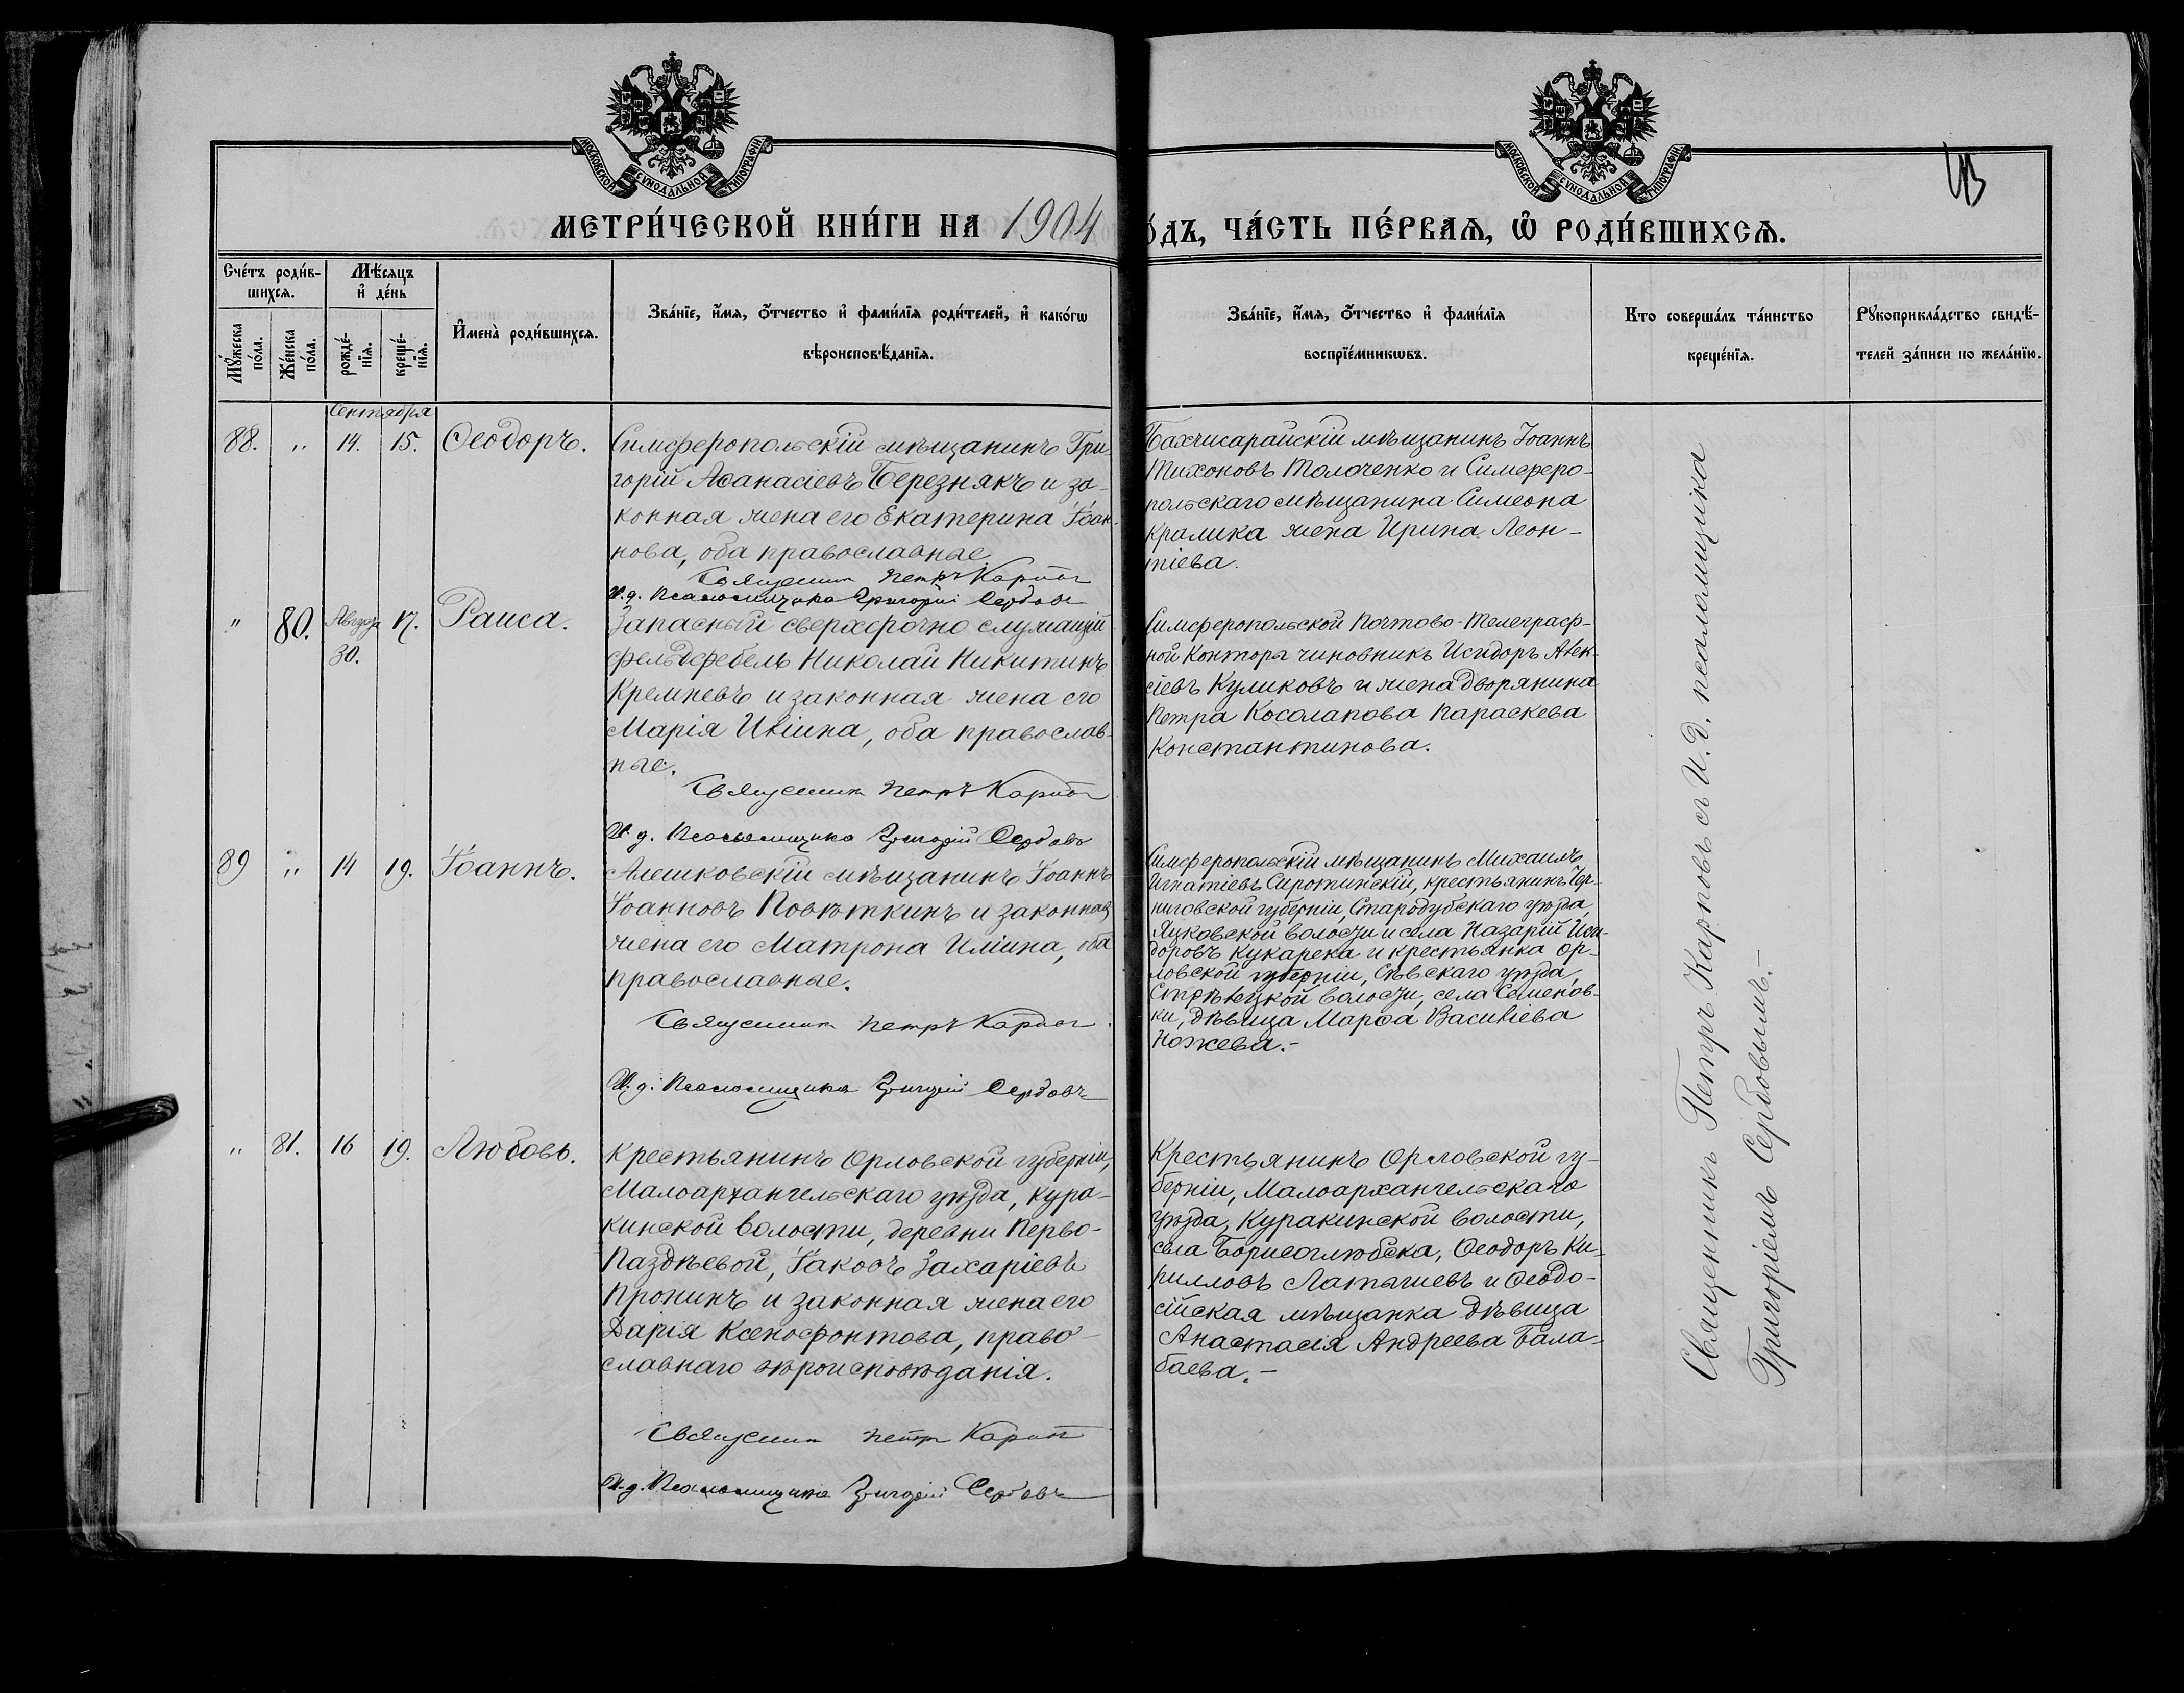 МОСКОВСКОЙ СУНОДАЛЬНОЙ ТИПОГРАФІИ
МОСКОВСКОЙ СУНОДАЛЬНОЙ ТИПОГРАФІИ
МЕТРИ́ЧЕСКОЙ КНИ́ГИ НА 1904
О́ДЪ, ЧА́СТЬ ПЕ́РВАѦ, Ѡ҆ РОДИ́ВШИХСѦ.
Сче́тъ роди́в-
шихсѧ.
Мѣ́сѧцъ
и҆ де́нь
Мꙋ́жеска
по́ла.
Же́нска
по́ла.
рожде́-
нїѧ.
креще́-
нїѧ.
И҆мена̀ роди́вшихсѧ.
Зва́нїе, и҆́мѧ, ѻ҆́тчество и҆ фами́лїѧ роди́телей, и҆ како́гѡ
вѣроисповѣ́данїѧ.
Зва́нїе, и҆́мѧ, ѻ҆́тчество и҆ фами́лїѧ
воспрїе́мникѡвъ.
Кто соверша́лъ та́инство
креще́нїѧ.
Рꙋкоприкла́дство свидѣ́-
телей за́писи по жела́нїю.
Сентября
88. " 14. 15. Ѳеодоръ.
Симферопольскій мѣщанинъ Гри-
горій Аѳанасіевъ Березнякъ и за-
конная жена его Екатерина Іоан-
нова, оба православные.
Священникъ Петръ Карповъ
И.д. Псаломщика Григорій Сербовъ
Бахчисарайскій мѣщанинъ Іоаннъ
Тихоновъ Толоченко и Симферо-
польскаго мѣщанина Симеона
Кралика жена Ирина Леон-
тіева.
" 80. Августа 17. Раиса.
30.
Запасный сверхсрочно служащій
фельдфебель Николай Никитинъ
Кремневъ и законная жена его
Марія Иліина, оба православ-
ные.
Священникъ Петръ Карповъ
И.д. Псаломщика Григорій Сербовъ
Симферопольской Почтово-Телеграф-
ной Контора чиновникъ Исидоръ Алек-
сіевъ Куликовъ и жена дворянина
Петра Косолапова Параскева
Константинова.
89 " 14 19. Іоаннъ.
Алешковскій мѣщанинъ Іоаннъ
Іоанновъ Повѣткинъ и законная
жена его Матрона Иліина, оба
православные.
Священникъ Петръ Карповъ
И.д. Псаломщика Григорій Сербовъ
Симферопольскій мѣщанинъ Михаилъ
Игнатіевъ Сиротинскій, крестьянинъ Чер-
ниговской губерніи, Стародубскаго уѣзда,
Яцковской волости и села Назарій Иси-
доровъ Кукарека и крестьянка Ор-
ловской губерніи, Сѣвскаго уѣзда,
Стрѣлецкой волости, села Семенов-
ки, дѣвица Марѳа Василіева
Ножева.-
" 81. 16 19. Любовь.
Крестьянинъ Орловской губерніи,
Малоархангельскаго уѣзда, Кура-
кинской волости, деревни Перво-
Паздѣевой, Іаковъ Захаріевъ
Пронинъ и законная жена его
Дарія Ксенофонтова, право-
славнаго вѣроисповѣданія.
Священникъ Петръ Карповъ
И.д. Псаломщика Григорій Сербовъ
Крестьянинъ Орловской гу-
берніи, Малоархангельскаго
уѣзда, Куракинской волости,
села Борисоглѣбска, Ѳеодоръ Ки-
рилловъ Латышевъ и Ѳеодо-
сійская мѣщанка дѣвица
Анастасія Андреева Бала-
баева.-
Священникъ Петръ Карповъ съ И.д. псаломщика
Григоріемъ Сербовымъ.-